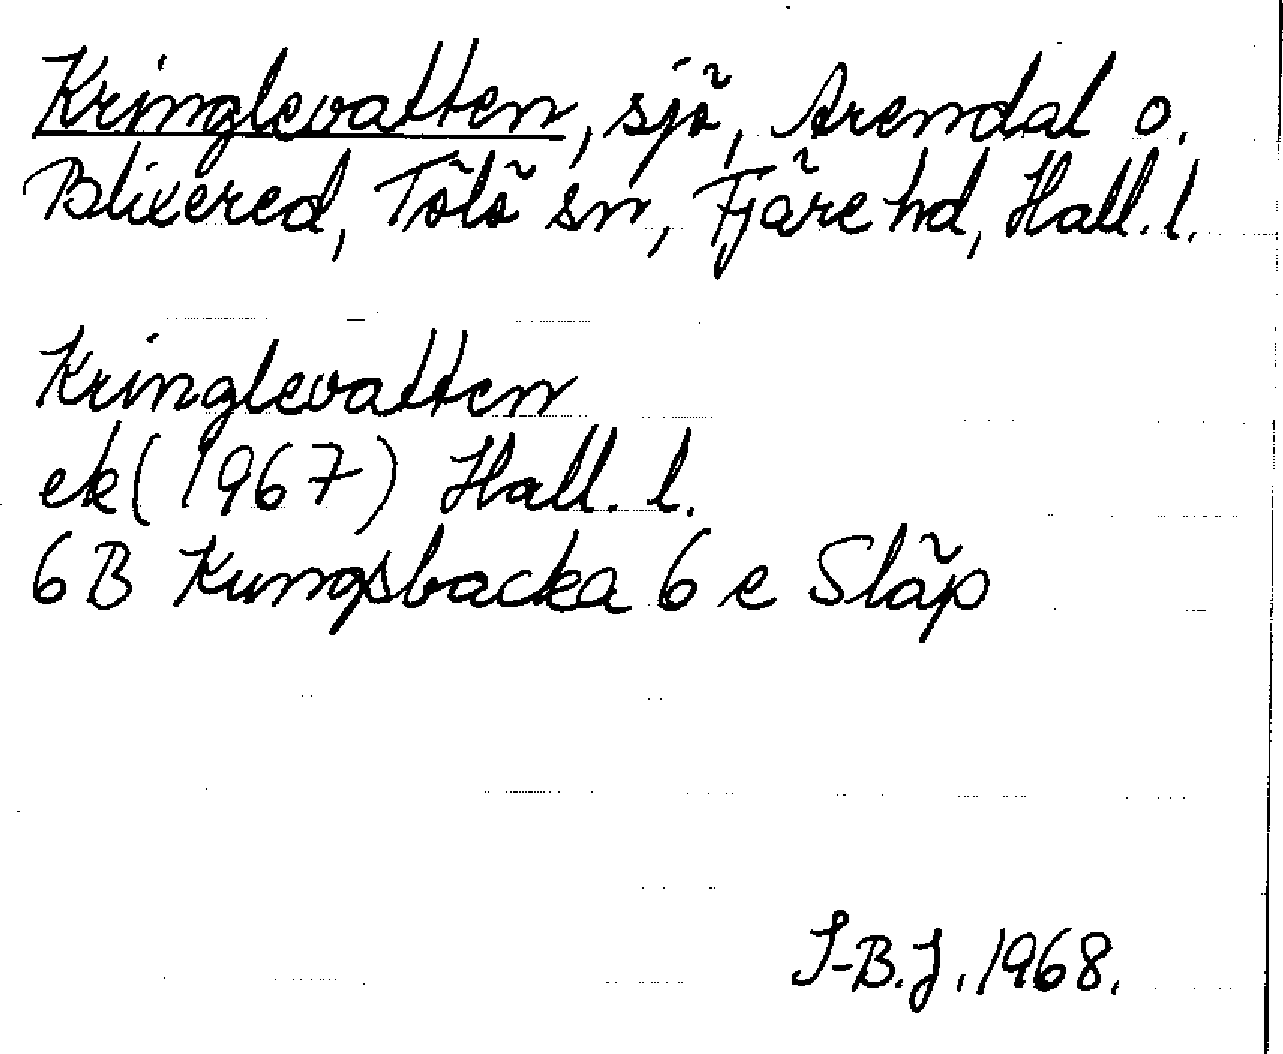 Kringlevatten, sjö, Arendal o.
Blixered, Tölö sn, Fjäre hd, Hall. l.
Kringlevatten
ek (1967) Hall. l.
6B Kungsbacka 6 e Släp
I-B.J. 1968.